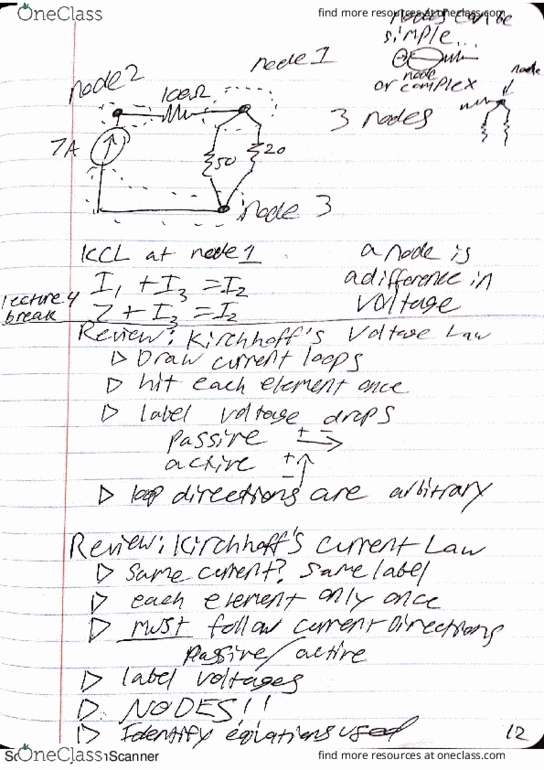 OneClass
find more resources at oneclass.com
nodes can be
simple...
node
or complex
node
node 2
node 1
100Ω
3 nodes
7A
50
20
node 3
KCL at node 1
a node is
a difference in
voltage
I1 + I3 = I2
7 + I3 = I2
lecture 4
break
Review: Kirchhoff's Voltage Law
▷ Draw current loops
▷ hit each element once
▷ label voltage drops
passive + -
active + -
▷ loop directions are arbitrary
Review: Kirchhoff's Current Law
▷ Same current? Same label
▷ each element only once
▷ must follow current directions
passive/active
▷ label voltages
▷ NODES!!
▷ Identify equations used
12
OneClass
Scanner
find more resources at oneclass.com